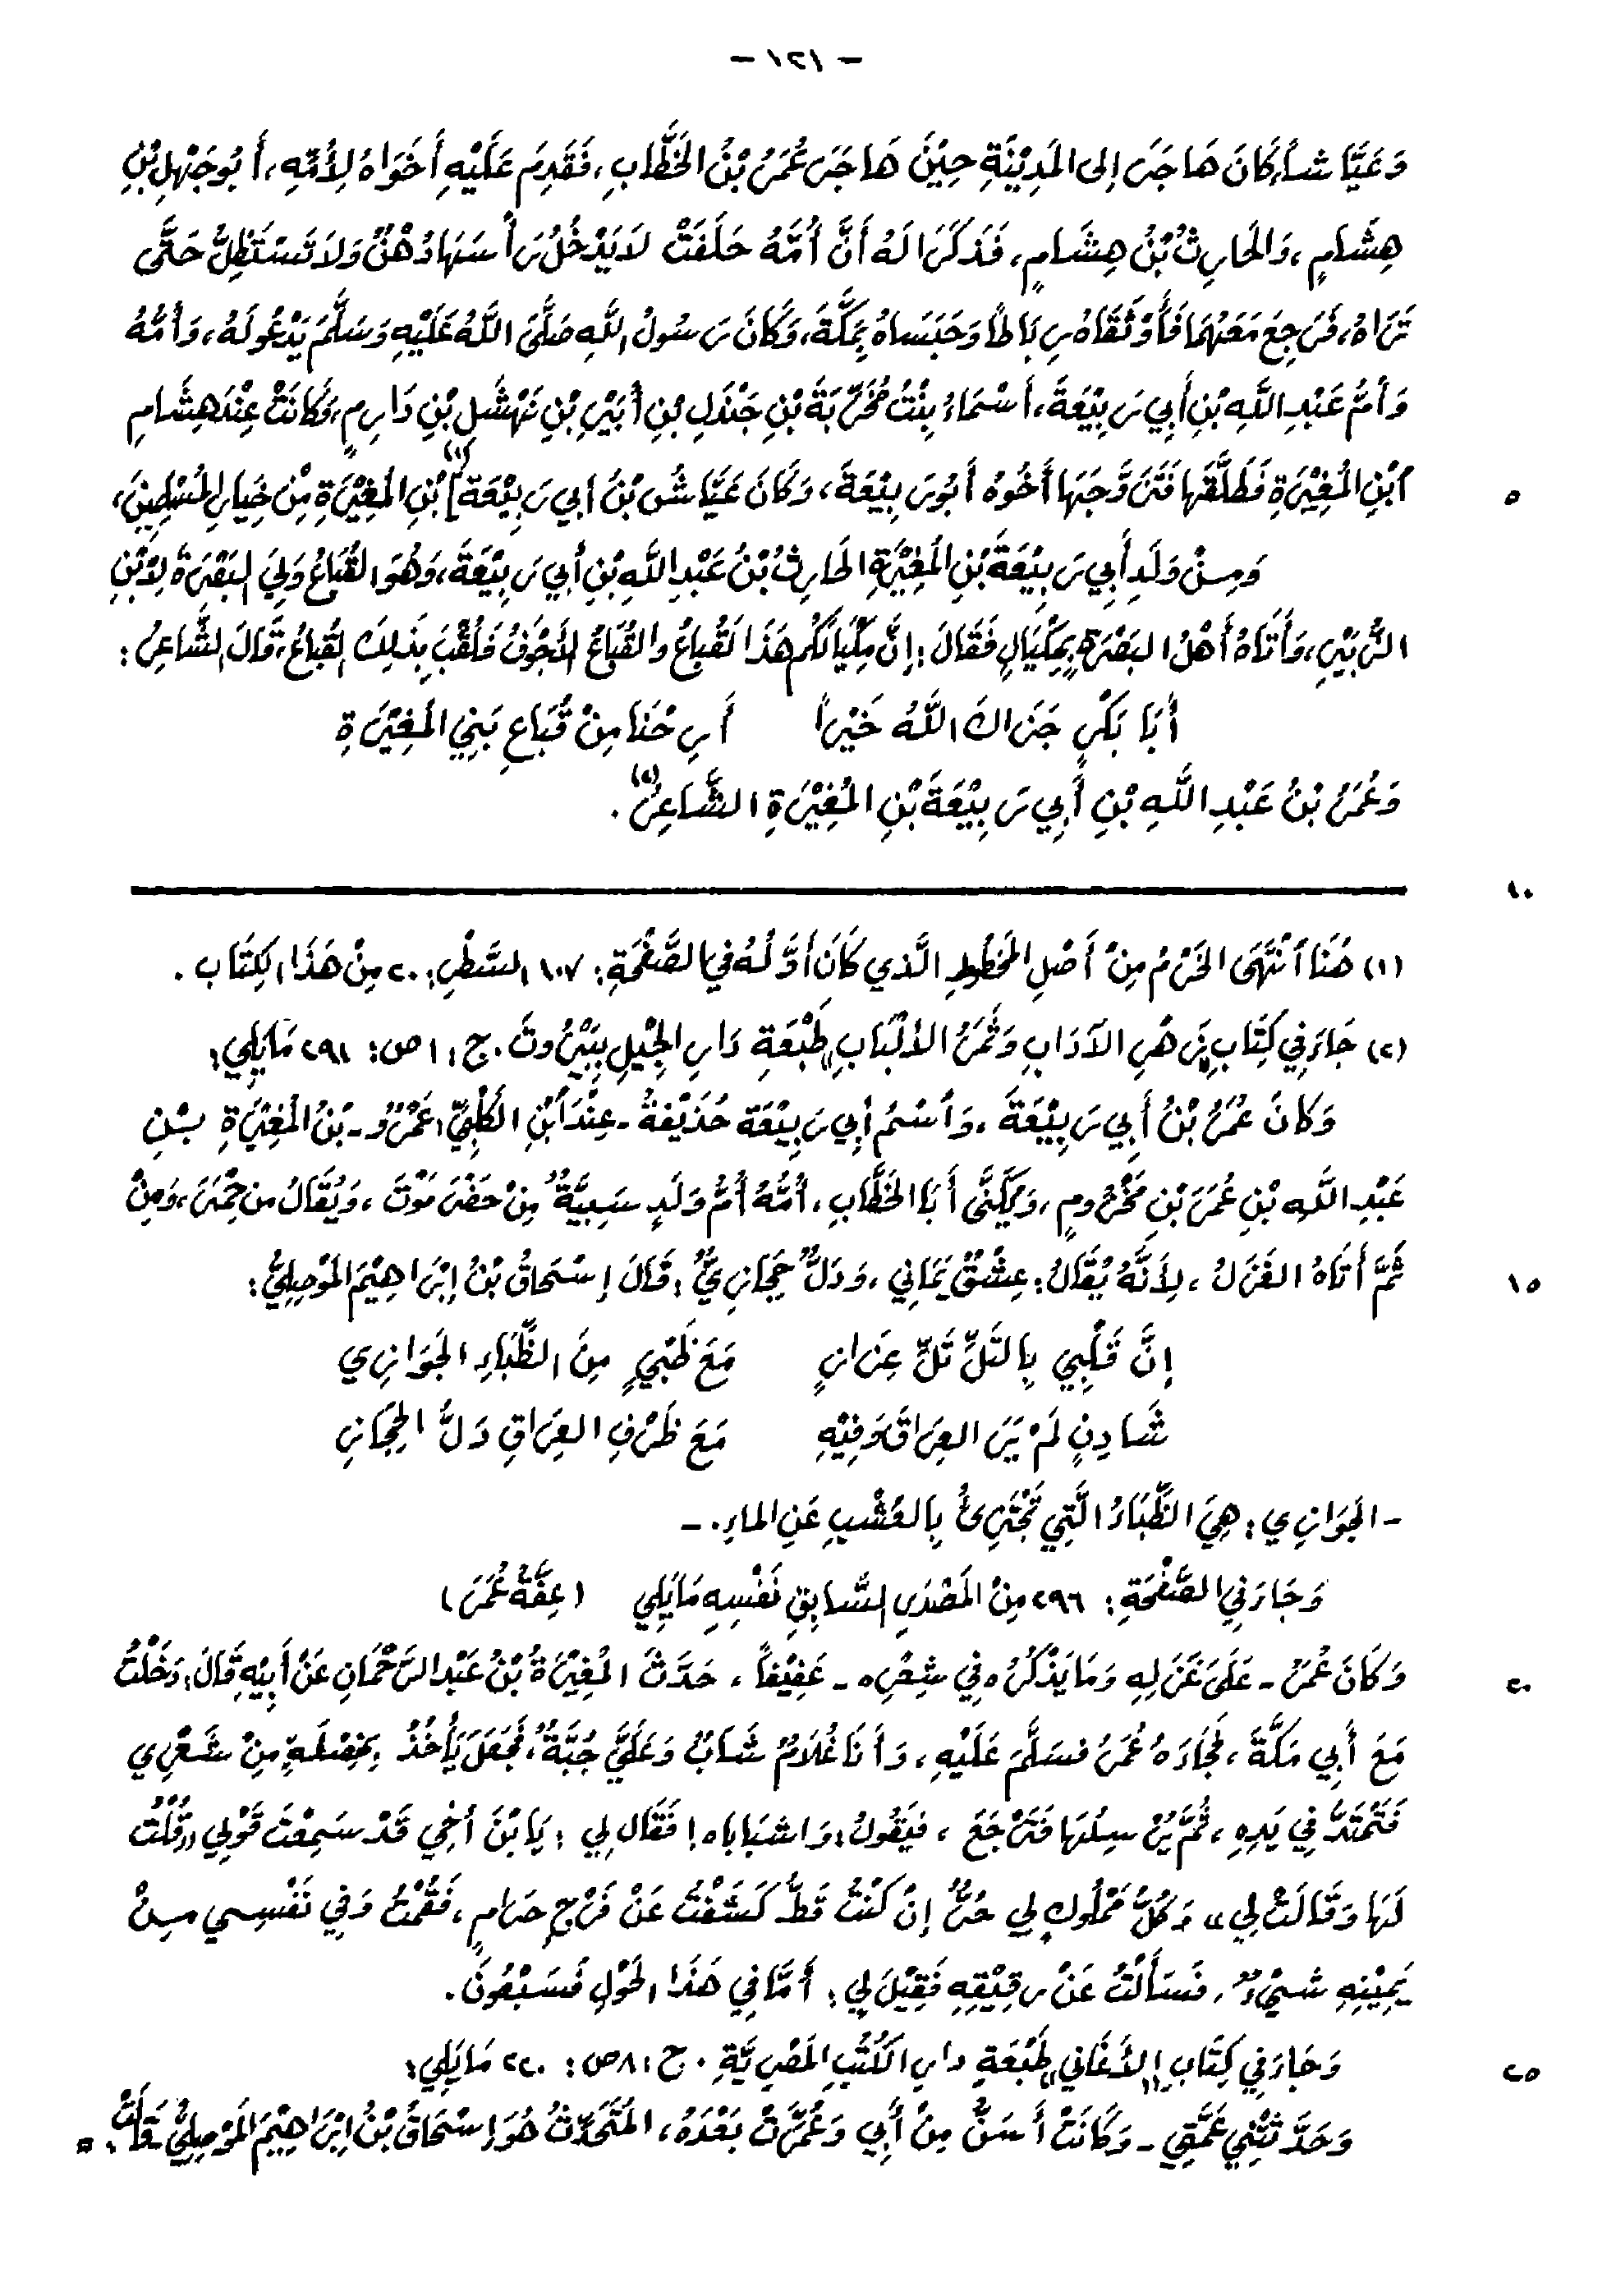 - ١٢١ -
وَعَيَّاشاً، كَانَ هَاجَرَ إلى المَدِيْنَةِ حِيْنَ هَاجَرَ عُمَرُ بْنُ الخَطَّابِ، فَقَدِمَ عَلَيْهِ أَخَوَاهُ لِأُمِّهِ، أَبُو جَهْلِ بْنِ
هِشَامٍ، وَالحَارِثُ بْنُ هِشَامٍ، فَذَكَرَا لَهُ أَنَّ أُمَّهُ حَلَفَتْ لاَيَدْخُلُ رَأْسَهَا دُهْنٌ وَلاَ تَسْتَظِلُّ حَتَّى
تَرَاهُ، فَرَجِعَ مَعَهُمَا فَأَوْثَقَاهُ رِبَاطاً وَحَبَسَاهُ بِمَكَّةَ، وَكَانَ رَسُولُ اللَّهِ صَلَّى اللَّهُ عَلَيْهِ وَسَلَّمَ يَدْعُو لَهُ، وَأُمُّهُ
وَأُمُّ عَبْدِ اللَّهِ بْنِ أَبِي رَبِيْعَةَ، أَسْمَاءُ بِنْتُ مُخَرِّبَةَ بْنِ جَنْدَلِ بْنِ أُبَيْرِ بْنِ نَهْشَلِ بْنِ دَارِمٍ، وَكَانَتْ عِنْدَ هِشَامِ
٥ ابْنِ المُغِيْرَةِ فَطَلَّقَهَا فَتَزَوَّجَهَا أَخُوهُ أَبُو رَبِيْعَةَ، وَكَانَ عَيَّاشُ بْنُ أبي رَبِيْعَةَ] (١) بْنِ المُغِيْرَةِ مِنْ خِيَارِ المُسْلِمِينَ،
وَمِنْ وَلَدِ أَبِي رَبِيْعَةَ بْنِ المُغِيْرَةِ الحَارِثُ بْنُ عَبْدِ اللَّهِ بْنِ أبي رَبِيْعَةَ، وَهُوَ القُبَاعُ وَلِيَ البَصْرَةَ لِابْنِ
الزُّبَيْرِ، وَأَتَاهُ أَهْلُ البَصْرَةِ بِمِكْيَالٍ فَقَالَ: إنَّ مِكْيَالَكُم هَذَا لَقُبَاعٌ والقُبَاعُ الأَجْوَفُ فَلُقِّبَ بِذلِكَ القُبَاعُ، قَالَ الشَّاعِرُ:
أَبَا بَكْرٍ جَزَاكَ اللَّهُ خَيْراً أَرِحْنَا مِنْ قُبَاعِ بَنِي المُغِيْرَةِ
وَعُمَرُ بْنُ عَبْدِ اللَّهِ بْنِ أَبِي رَبِيْعَةَ بْنِ المُغِيْرَةِ الشَّاعِرُ (٢).
١٠
(١) هُنَا انْتَهَى الخَرْمُ مِنْ أَصْلِ المَخْطُوطِ الَّذي كَانَ أَوَّلُهُ في الصَّفْحَةِ: ١٠٧ السَّطْرِ: ٢٠ مِنْ هَذَا الكِتَابِ.
(٢) جَاءَ فِي كِتَابِ زَهْرِ الآدَابِ وَثَمَرُ الأَلْبَابِ طَبْعَةِ دَارِ الجِيْلِ بِبَيْرُوتَ. ج: ١ ص: ٢٩١ مَايَلِي:
وَكَانَ عُمَرُ بْنُ أَبِي رَبِيْعَةَ، وَاسْمُ أبي رَبِيْعَة حُذَيْفَةُ - عِنْدَ ابْنِ الكَلْبِيِّ: عَمْرٌو - بْنُ المُغِيْرَةِ بْنِ
عَبْدِ اللَّهِ بْنِ عُمَرَ بْنِ مَخْزُومٍ، وَيُكَنَّى أَبَا الخَطَّابِ، أُمُّهُ أُمُّ وَلَدٍ سَبِيَّةٌ مِنْ حَضْرَ مَوْتَ، وَيُقَالُ مِن حِمْيَرَ، وَمِنْ
١٥ ثَمَّ أَتَاهُ الغَزَلُ، لِأَنَّهُ يُقَالُ: عِشْقٌ يَمَانِي، وَدَلٌّ حِجَازِيٌّ: قَالَ إسْحَاقُ بْنُ إبْرَاهِيْمَ المَوْصِلِيُّ:
إنَّ قَلْبِي بِالتَّلِّ تَلِّ عِزَازٍ مَعَ ظَبْيٍ مِنَ الظِّبَاءِ الجَوَازِي
شَادِنٍ لَمْ يَرَ العِرَاقَ وَفِيْهِ مَعَ ظَرْفِ العِرَاقِ دَلُّ الحِجَازِ
- الجَوَازِي: هِيَ الظِّبَاءُ الَّتِي تَجْتَزِئُ بِالعُشْبِ عَنِ المَاءِ. -
وَجَاءَ فِي الصَّفْحَةِ: ٢٩٦ مِنْ المَصْدَرِ السَّابِقِ نَفْسِهِ مَايَلِي (عِفَّةُ عُمَرَ)
٢٠ وَكَانَ عُمَرُ - عَلَى غَزَلِهِ وَمَا يَذْكُرُهُ فِي شِعْرِهِ - عَفِيْفاً، حَدَّثَ المُغِيْرَةُ بْنُ عَبْدِ الرَّحْمَانِ عَنْ أَبِيْهِ قَالَ: دَخَلْتُ
مَعَ أَبِي مَكَّةَ، فَجَاءَهُ عُمَرُ فسَلَّمَ عَلَيْهِ، وَأَنَا غُلَامٌ شَابٌّ وَعَلَيَّ جُبَّةٌ، فَجَعَلَ يَأْخُذُ بِخِصْلَةٍ مِنْ شَعْرِي
فَتَمْتَدُّ فِي يَدِهِ، ثُمَّ يُرْسِلُهَا فَتَرْجَعُ، فيَقُولُ: وَاشَبَابَاه! فَقَالَ لِي: يَا بْنَ أخِي قَدْ سَمِعْتَ قَوْلِي «قُلْتُ
لَهَا وَقَالَتْ لِي» وَكُلُّ مَمْلُوكٍ لِي حُرٌّ إنْ كُنْتُ قَطُّ كَشَفْتُ عَنْ فَرْجٍ حَرَامٍ، فَقُمْتُ وَفِي نَفْسِي مِنْ
يَمِيْنِهِ شَيْءٌ، فَسَأَلْتُ عَنْ رقِيْقِهِ فَقِيْلَ لِي: أَمَّا فِي هَذَا الحَوْلِ فَسَبْعُونَ.
٢٥ وَجَاءَ فِي كِتَابِ «الأَغَانِي» طَبْعَةِ دارِ الكُتُبِ المَصْرِيَّةِ. ج: ٨ ص: ٢٢٠ مَايَلِي:
وَحَدَّثَتْنِي عَمَّتِي - وَكَانَتْ أَسَنَّ مِنْ أَبِي وَعُمِّرَتْ بَعْدَهُ، المُتَحَدِّثُ هُوَ إسْحَاقُ بْنُ إبْرَاهِيْمَ المَوْصِلِيُّ - قَالَتْ: =